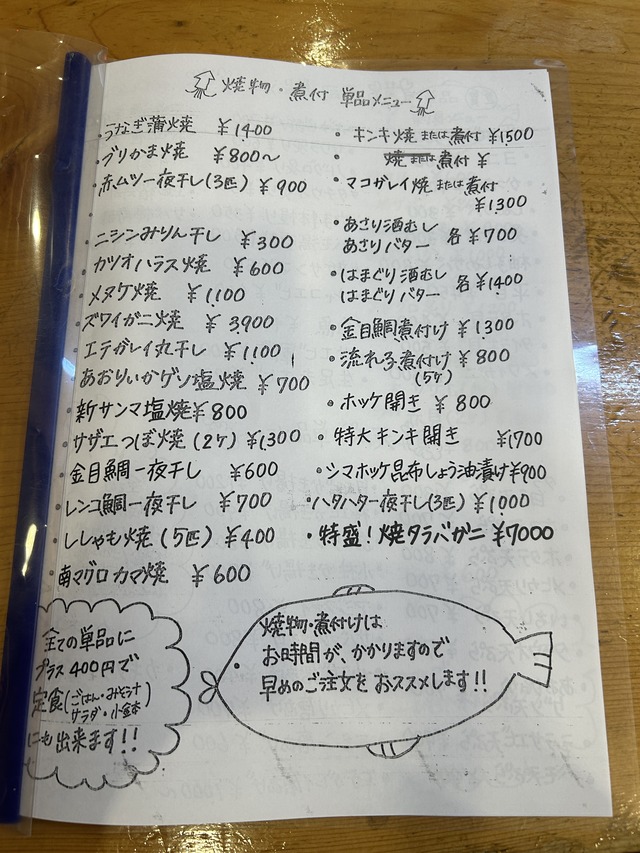 焼物・煮付 単品メニュー
・うなぎ蒲焼 ¥1400
・ブリかま焼 ¥800〜
・赤ムツ一夜干し(3匹) ¥900
・ニシンみりん干し ¥300
・カツオハラス焼 ¥600
・メヌケ焼 ¥1100
・ズワイガニ焼 ¥3900
・エテガレイ丸干し ¥1100
あおりいかゲソ塩焼 ¥700
・新サンマ塩焼 ¥800
・サザエつぼ焼(2ケ) ¥1300
・金目鯛一夜干し ¥600
・レンコ鯛一夜干し ¥700
・ししゃも焼(5匹) ¥400
・南マグロカマ焼 ¥600
・キンキ焼または煮付 ¥1500
・焼または煮付 ¥
・マコガレイ焼または煮付
¥1300
・あさり酒むし
あさりバター 各¥700
・はまぐり酒むし
はまぐりバター 各¥1400
・金目鯛煮付け ¥1300
・流れ子煮付け ¥800
(5ケ)
・ホッケ開き ¥800
・特大キンキ開き ¥1700
・シマホッケ昆布しょう油漬け ¥900
・ハタハタ一夜干し(3匹) ¥1000
・特盛!焼タラバガニ ¥7000
全ての単品に
プラス400円で
定食(ごはん・みそ汁
サラダ・小鉢)
にも出来ます!!
焼物・煮付けは
お時間が、かかりますので
早めのご注文をおススメします!!